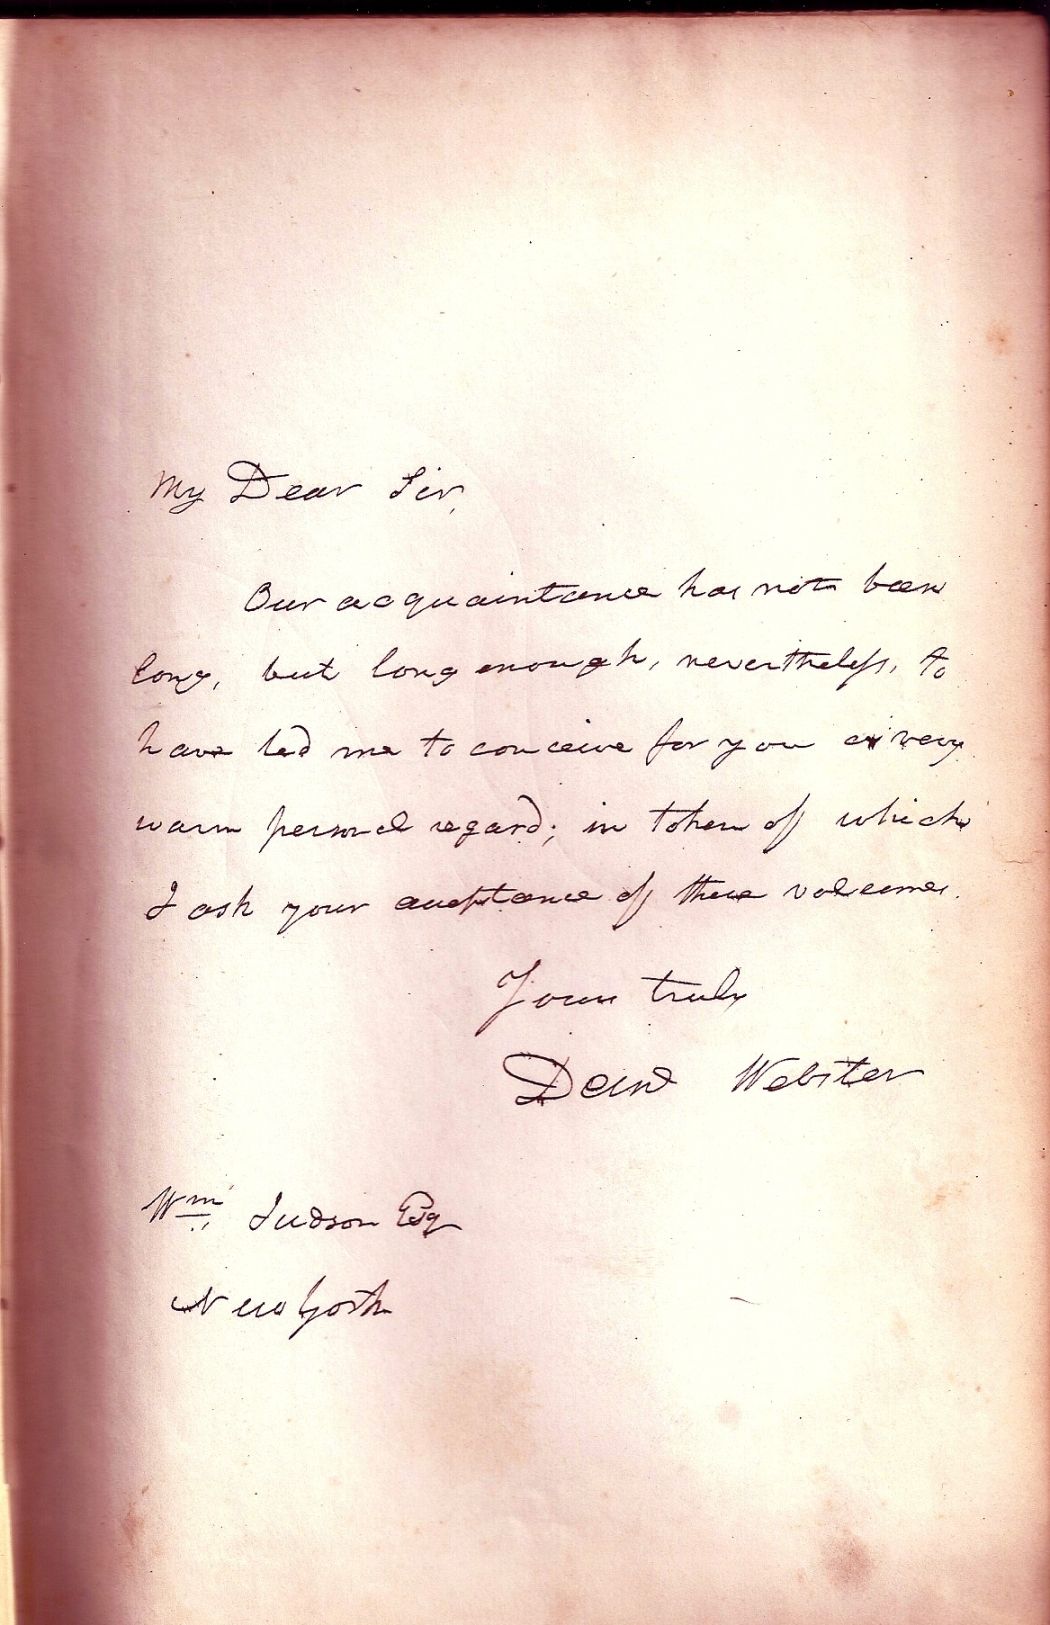 My Dear Sir,
Our acquaintance has not been
long, but long enough, nevertheless, to
have led me to conceive for you a very
warm personal regard; in token of which
I ask your acceptance of these volumes.
Yours truly
Danl Webster
Wm. Judson Esq
New York